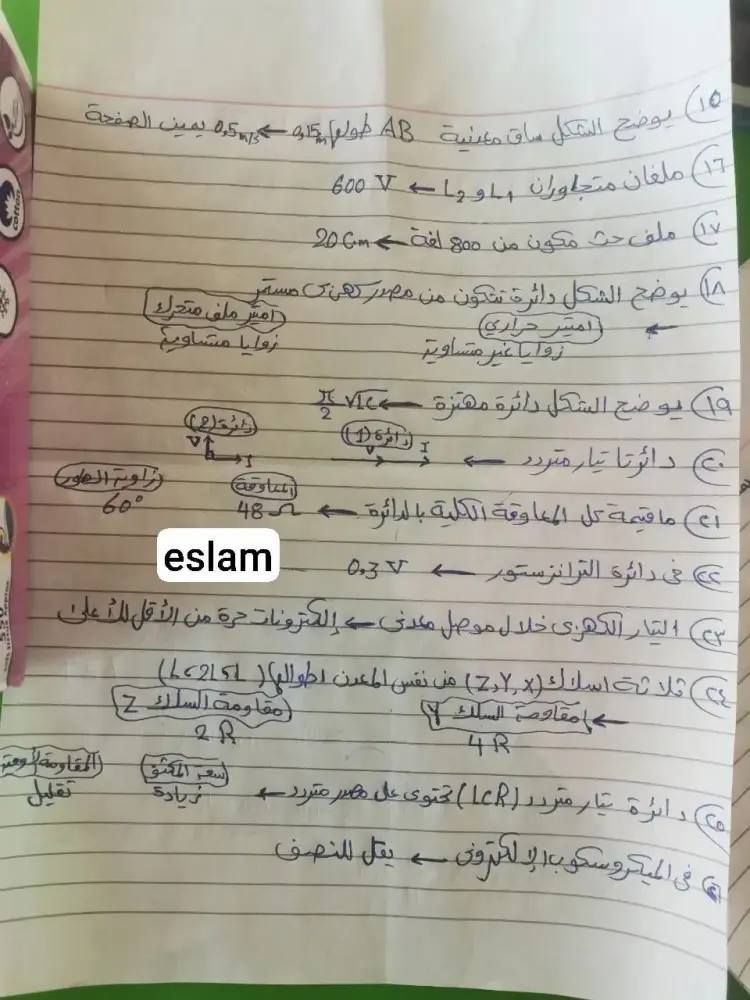 ١٥) يوضح الشكل ساق معدنية AB طولها 0,15m ← 0,5m/s يمين الصفحة
١٦) ملفان متجاوران L1 و L2 ← 600 V
١٧) ملف حث مكون من 800 لفة ← 20 Cm
١٨) يوضح الشكل دائرة تتكون من مصدر كهربى مستمر
← اميتر حرارى اميتر ملف متحرك
زوايا غير متساوية زوايا متساوية
١٩) يوضح الشكل دائرة مهتزة ← π/2 √LC
٢٠) دائرتا تيار متردد ← دائرة (1) V I دائرة (2) V I
٢١) ما قيمة كل المعاوقة الكلية بالدائرة ← المعاوقة 48 Ω زاوية الطور 60°
٢٢) فى دائرة الترانزستور ← 0.3 V
eslam
٢٣) التيار الكهربى خلال موصل معدنى ← إلكترونات حرة من الأقل للأعلى
٢٤) ثلاثة اسلاك (Z,Y,X) من نفس المعدن اطوالها
← مقاومة السلك Y مقاومة السلك Z
4R 2R
٢٥) دائرة تيار متردد (LCR) تحتوى على مصدر متردد ← سعة المكثف زيادة المقاومة الأومية تقليل
٢٦) فى الميكروسكوب الإلكترونى ← يقل للنصف
cotton